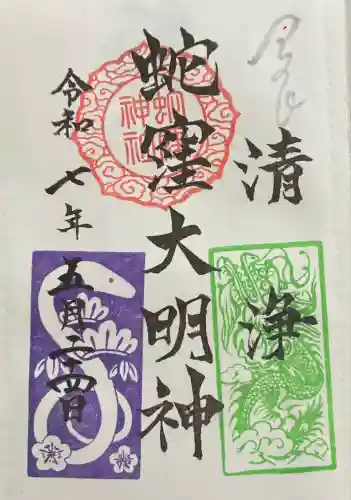 清浄
蛇窪大明神
令和七年
五月二十四日
蛇窪
神社